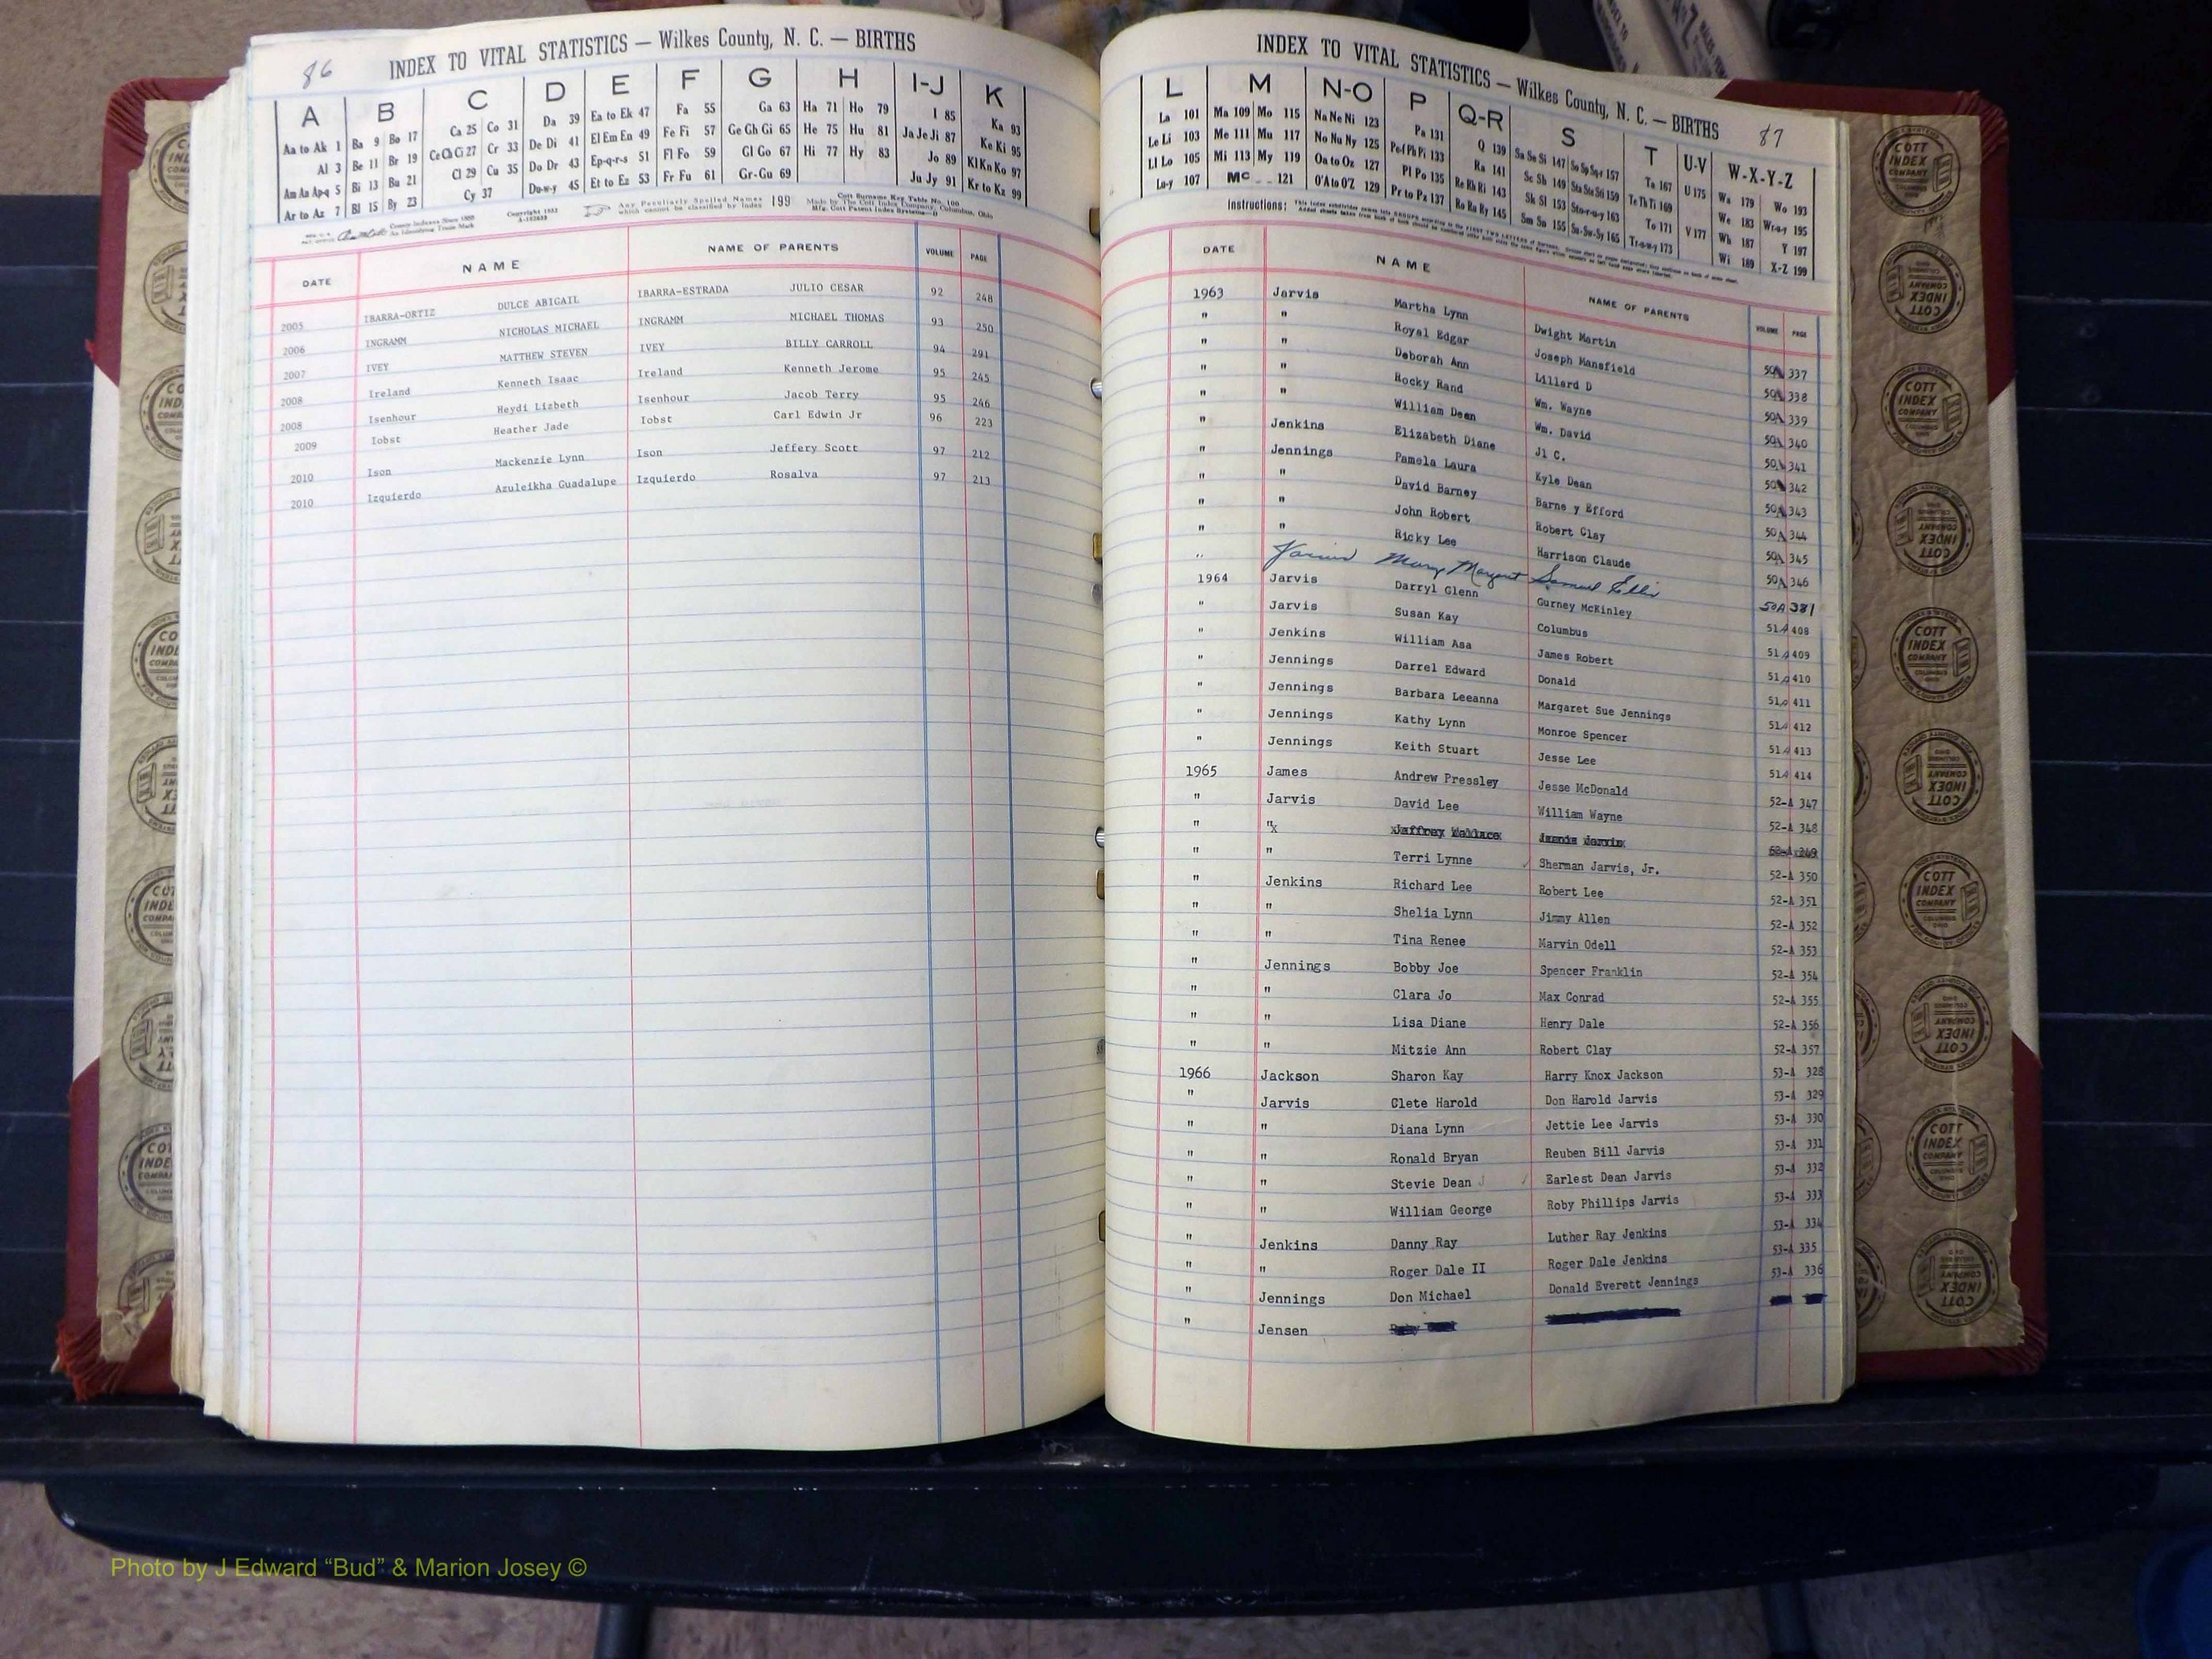 86
INDEX TO VITAL STATISTICS — Wilkes County, N. C. — BIRTHS
A B C D E F G H I-J K
Aa to Ak 1 Ba 9 Bo 17 Ca 25 Co 31 Da 39 Ea to Ek 47 Fa 55 Ga 63 Ha 71 Ho 79 I 85 Ka 93
Al 3 Be 11 Br 19 Ce Ch Ci 27 Cr 33 De Di 41 El Em En 49 Fe Fi 57 Ge Gh Gi 65 He 75 Hu 81 Ja Je Ji 87 Ke Ki 95
Am An Ap-q 5 Bi 13 Bu 21 Cl 29 Cu 35 Do Dr 43 Ep-q-r-s 51 Fl Fo 59 Gl Go 67 Hi 77 Hy 83 Jo 89 Kl Kn Ko 97
Ar to Az 7 Bl 15 By 23 Cy 37 Du-w-y 45 Et to Ez 53 Fr Fu 61 Gr-Gu 69 Ju Jy 91 Kr to Kz 99
Any Peculiarly Spelled Names which cannot be classified by Index 199
DATE NAME NAME OF PARENTS VOLUME PAGE
2005 IBARRA-ORTIZ DULCE ABIGAIL IBARRA-ESTRADA JULIO CESAR 92 248
2006 INGRAMM NICHOLAS MICHAEL INGRAMM MICHAEL THOMAS 93 250
2007 IVEY MATTHEW STEVEN IVEY BILLY CARROLL 94 291
2008 Ireland Kenneth Isaac Ireland Kenneth Jerome 95 245
2008 Isenhour Heydi Lizbeth Isenhour Jacob Terry 95 246
2009 Iobst Heather Jade Iobst Carl Edwin Jr 96 223
2010 Ison Mackenzie Lynn Ison Jeffery Scott 97 212
2010 Izquierdo Azuleikha Guadalupe Izquierdo Rosalva 97 213
INDEX TO VITAL STATISTICS — Wilkes County, N. C. — BIRTHS
87
L M N-O P Q-R S T U-V W-X-Y-Z
La 101 Ma 109 Mo 115 Na Ne Ni 123 Pa 131 Q 139 Sa Se Si 147 So Sp Sq-r 157 Ta 167 U 175 Wa 179 Wo 193
Le Li 103 Me 111 Mu 117 No Nu Ny 125 Pe-f Ph Pi 133 Ra 141 Sc Sh 149 Sta Ste Sti 159 Te Th Ti 169 V 177 We 183 Wr-u-y 195
Ll Lo 105 Mi 113 My 119 Oa to Oz 127 Pl Po 135 Re Rh Ri 143 Sk Sl 153 Sto-r-u-y 163 To 171 Wh 187 Y 197
Lu-y 107 Mc 121 O'A to O'Z 129 Pr to Pz 137 Ro Ru Ry 145 Sm Sn 155 Su-Sw-Sy 165 Tr-u-w-y 173 Wi 189 X-Z 199
Instructions:
DATE NAME NAME OF PARENTS VOLUME PAGE
1963 Jarvis Martha Lynn Dwight Martin 50A 337
" " Royal Edgar Joseph Mansfield 50A 338
" " Deborah Ann Lillard D 50A 339
" " Rocky Rand Wm. Wayne 50A 340
" " William Dean Wm. David 50A 341
" Jenkins Elizabeth Diane Jl C. 50A 342
" Jennings Pamela Laura Kyle Dean 50A 343
" " David Barney Barne y Efford 50A 344
" " John Robert Robert Clay 50A 345
" " Ricky Lee Harrison Claude 50A 346
" Jarvis Mary Margaret Samuel Ellis 50A 381
1964 Jarvis Darryl Glenn Gurney McKinley 51A 408
" Jarvis Susan Kay Columbus 51A 409
" Jenkins William Asa James Robert 51A 410
" Jennings Darrel Edward Donald 51A 411
" Jennings Barbara Leeanna Margaret Sue Jennings 51A 412
" Jennings Kathy Lynn Monroe Spencer 51A 413
" Jennings Keith Stuart Jesse Lee 51A 414
1965 James Andrew Pressley Jesse McDonald 52-A 347
" Jarvis David Lee William Wayne 52-A 348
" " Jeffrey Wallace 52-A 349
" " Terri Lynne Sherman Jarvis, Jr. 52-A 350
" Jenkins Richard Lee Robert Lee 52-A 351
" " Shelia Lynn Jimmy Allen 52-A 352
" " Tina Renee Marvin Odell 52-A 353
" Jennings Bobby Joe Spencer Franklin 52-A 354
" " Clara Jo Max Conrad 52-A 355
" " Lisa Diane Henry Dale 52-A 356
" " Mitzie Ann Robert Clay 52-A 357
1966 Jackson Sharon Kay Harry Knox Jackson 53-A 328
" Jarvis Clete Harold Don Harold Jarvis 53-A 329
" " Diana Lynn Jettie Lee Jarvis 53-A 330
" " Ronald Bryan Reuben Bill Jarvis 53-A 331
" " Stevie Dean Earlest Dean Jarvis 53-A 332
" " William George Roby Phillips Jarvis 53-A 333
" Jenkins Danny Ray Luther Ray Jenkins 53-A 334
" " Roger Dale II Roger Dale Jenkins 53-A 335
" Jennings Don Michael Donald Everett Jennings 53-A 336
" Jensen
COTT INDEX COMPANY
Photo by J Edward “Bud” & Marion Josey ©